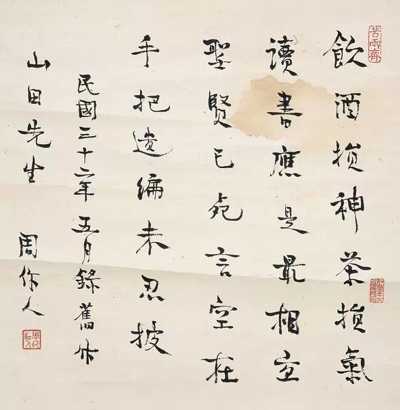 飲酒損神茶損氣
讀書應是最相宜
聖賢已死言空在
手把遺編未忍披
民國三十二年五月錄舊作
山田先生 周作人